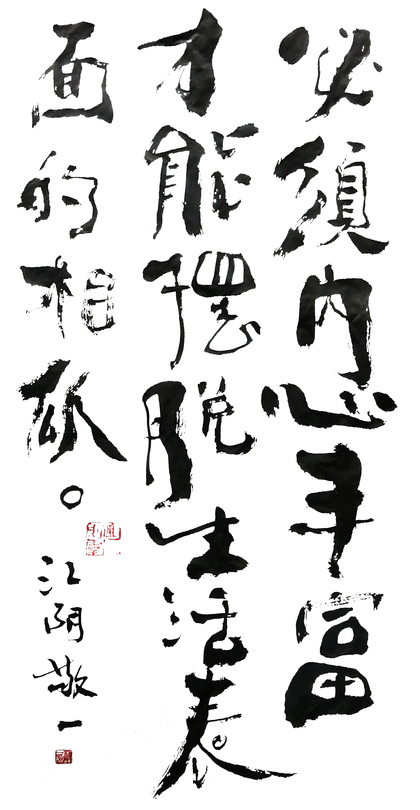 必須内心丰富
才能擺脱生活表
面的相似。
江阴敬一